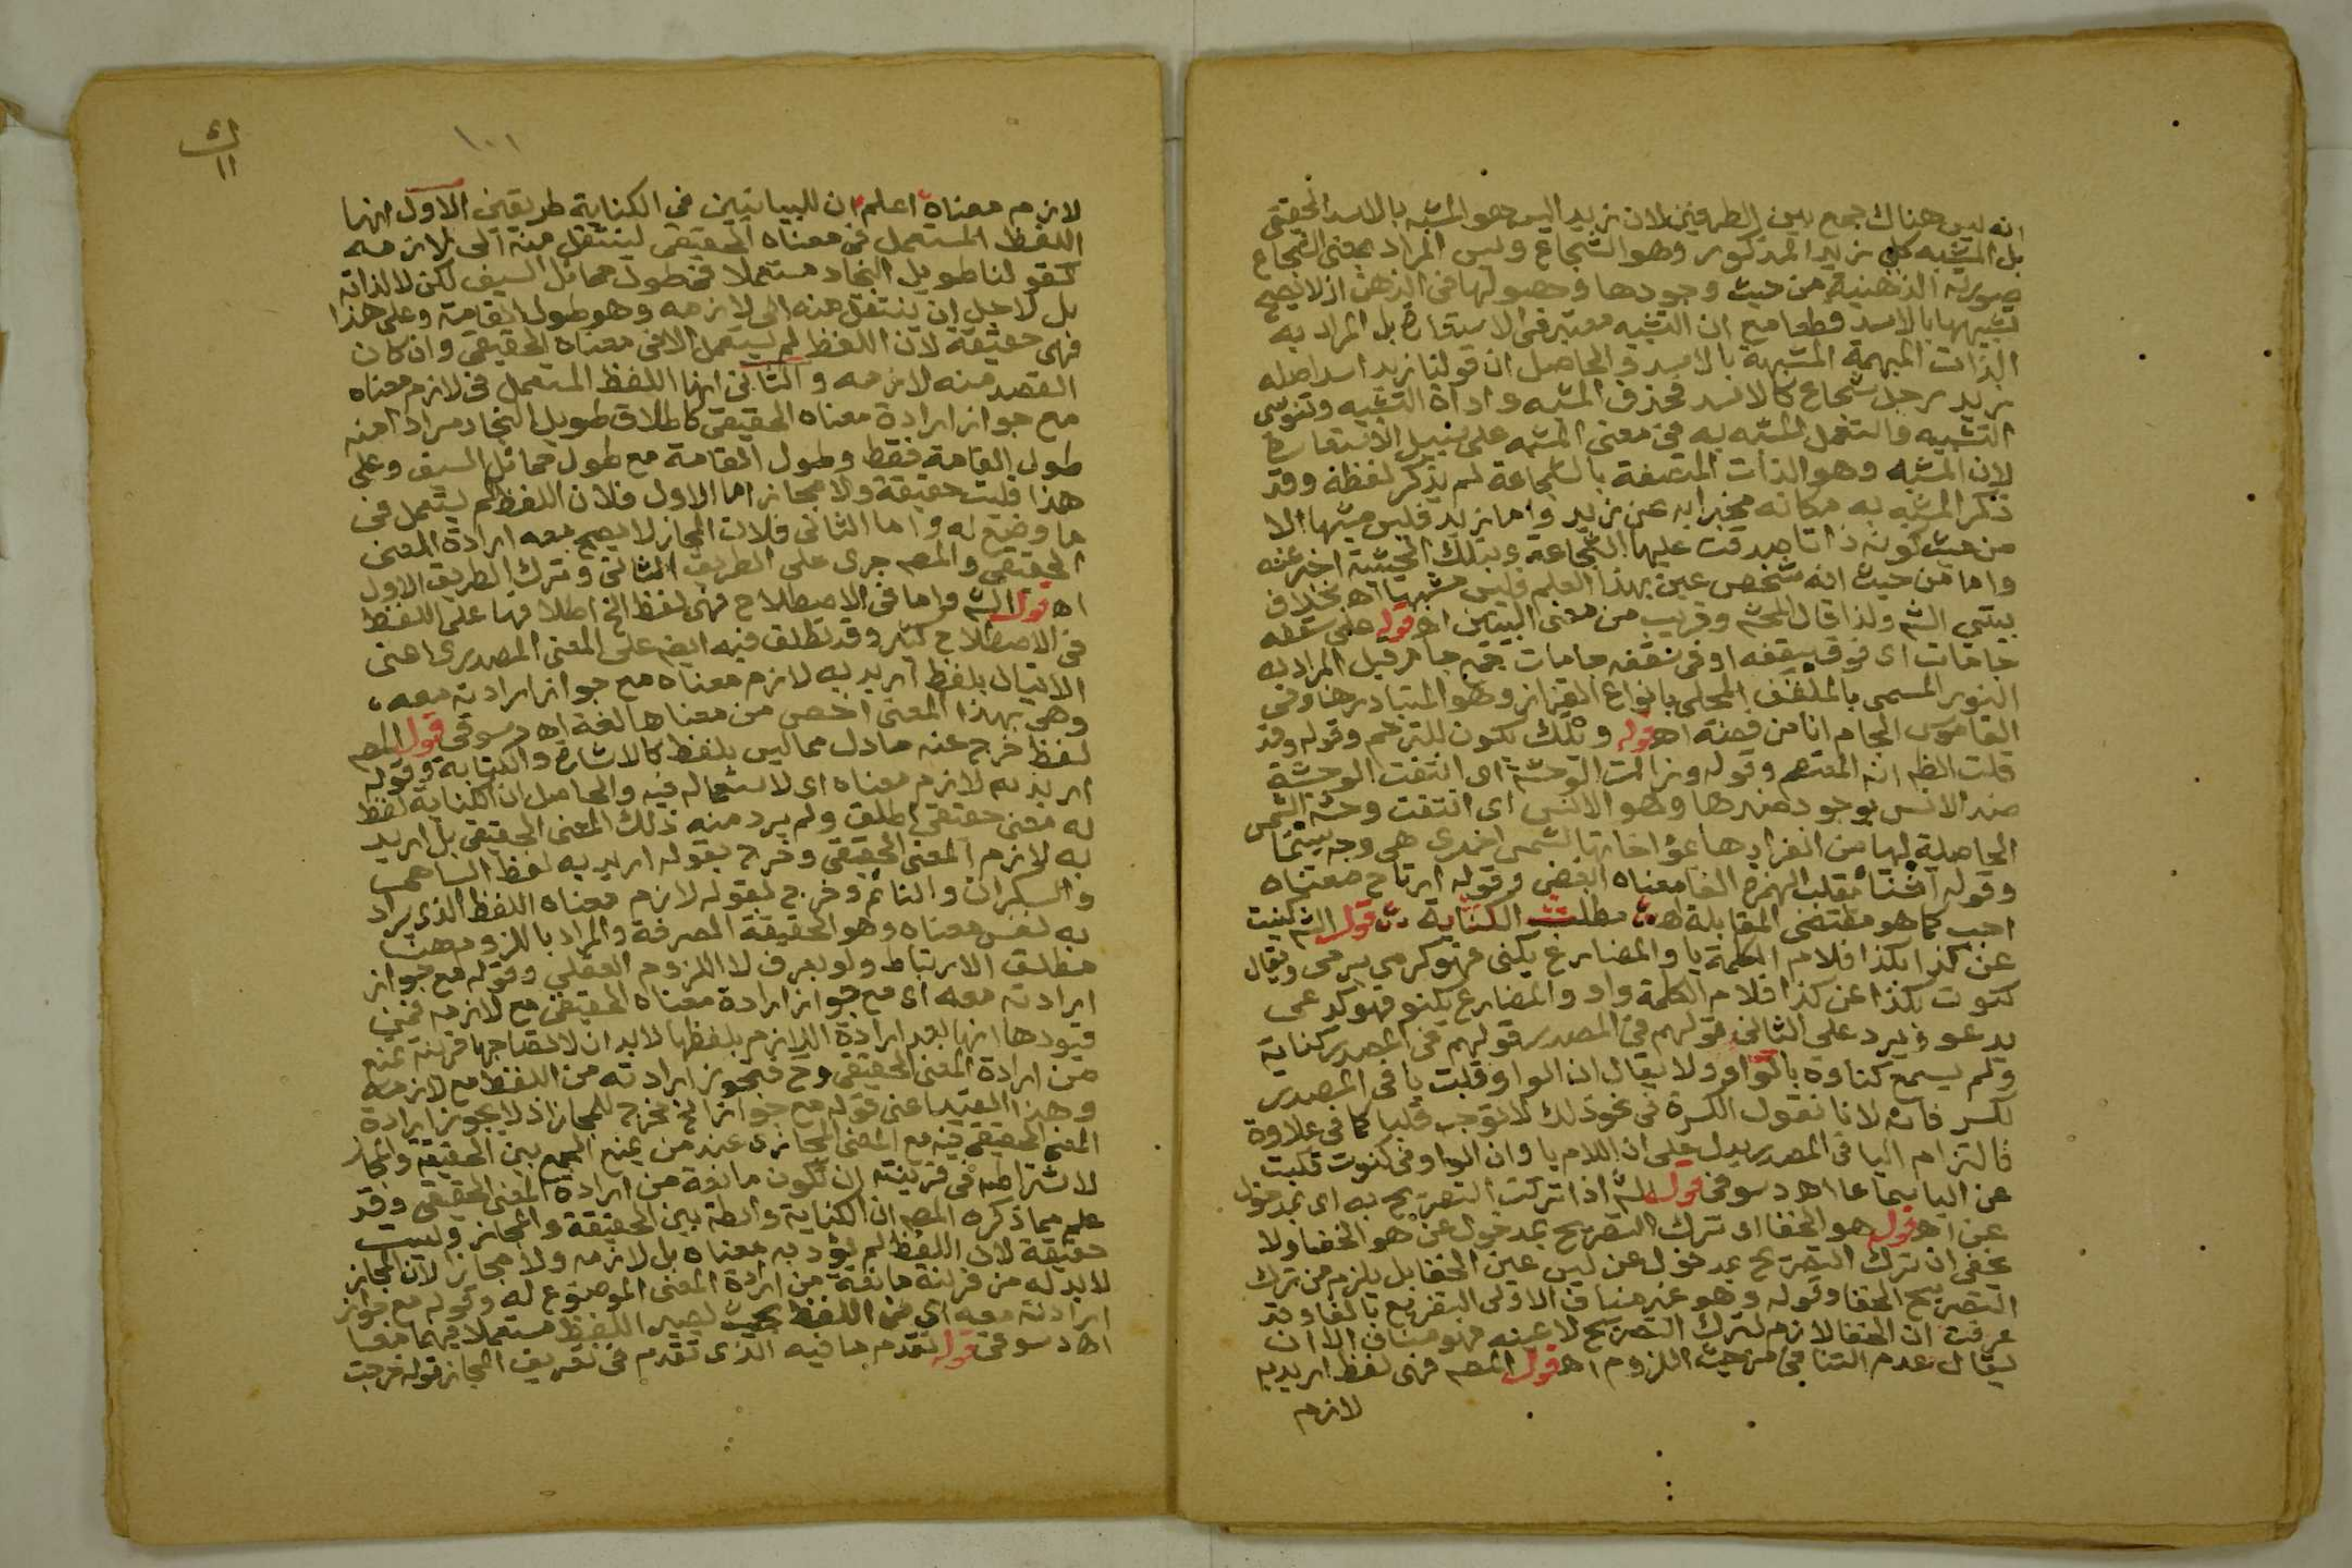 انه ليس هناك جمع بين الطرفين لان زيد اليس هو المشبه بالاسد الحقيقى
بل المشبه كلى زيد المذكور وهو الشجاع وليس المراد بمعنى الشجاع
صورته الذهنية من حيث وجودها وحصولها فى الذهن اذ لا يصح
تشبيهها بالاسد قطعا مع ان التشبيه معتبر فى الاستعارة بل المراد به
الذات المبهمة المشبهة بالاسد والحاصل ان قولنا زيد اسد اصله
زيد رجل شجاع كالاسد فحذف المشبه واداة التشبيه وتنوسى
التشبيه واستعمل المشبه به فى معنى المشبه على سبيل الاستعارة
لان المشبه وهو الذات المتصفة بالشجاعة لم يذكر لفظه وقد
ذكر المشبه به مكانه مخبرا به عن زيد واما زيد فليس مشبها الا
من حيث كونه ذاتا صدقت عليها الشجاعة وبتلك الحيثية اخبر عنه
واما من حيث انه شخص عين بهذا العلم فليس مشبها اه بخلاف
بيتى الش ولذا قال المحشى وقريب من معنى البيتين اه قوله على سقفه
جامات اى فوق سقفه او فى نقفه جامات جمع جام قيل المراد به
النور المسمى بالملقف المحلى بانواع القزاز وهو المتبادر هنا وفى
القاموس الجام انا من فضة اه قوله وتلك تكون للترخم وقوله وقد
قلت الظ انه المعتصم وقوله وزالت الوحشة اى انتفت الوحشة
ضد الانس بوجود ضدها وهو الانس اى انتفت وحشة الشمس
الحاصلة لها من انفرادها عؤاخاتها لشمس اخرى هى وجه بيتنا
وقوله اشنا بقلب الهمزة الفا معناه ابغض وقوله ارتاح معناه
احب كما هو مقتضى المقابلة اه مطلب الكناية قول الش كنيت
عن كذا بكذا فلام الكلمة يا والمضارع يكنى فهو كرمى يرمى ويقال
كنوت بكذا عن كذا فلام الكلمة واو والمضارع يكنو فهو كدعى
يدعو ويرد على الثانى قولهم فى المصدر قولهم فى المصدر كناية
ولم يسمع كناوة بالواو ولا يقال ان الواو قلبت يا فى المصدر
لكسر فائه لانا نقول الكسرة فى نحو ذلك لا توجب قلبا كما فى علاوة
فالتزام اليا فى المصدر يدل على ان اللام يا وان الواو فى كنوت قلبت
عن اليا سماعا اه دسوقى قول الش اذا تركت التصريح به اى بمدخول
عن اه قوله هو الخفا اى ترك التصريح بمدخول عن هو الخفا ولا
يخفى ان ترك التصريح بمدخول عن ليس عين الخفا بل يلزم من ترك
التصريح الخفا وقوله وهو غير مناف الاولى التفريع بالفا وقد
عرفت ان الخفا لازم لترك التصريح لا عينه فهو مناف الا ان
يقال بعدم التنافى من حيث اللزوم اه قول المص فهى لفظ اريد به
لازم
١٠١
ك
١١
لازم معناه اعلم ان للبيانيين فى الكناية طريقين الاول انها
اللفظ المستعمل فى معناه الحقيقى لينتقل منه الى لازمه
كقولنا طويل النجاد مستعملا فى طول حمائل السيف لكن لا لذاته
بل لاجل ان ينتقل منه الى لازمه وهو طول القامة وعلى هذا
فهى حقيقة لان اللفظ لم يستعمل الا فى معناه الحقيقى وان كان
القصد منه لازمه والثانى انها اللفظ المستعمل فى لازم معناه
مع جواز ارادة معناه الحقيقى كاطلاق طويل النجاد مرادا منه
طول القامة فقط وطول القامة مع طول حمائل السيف وعلى
هذا فليت حقيقة ولا مجاز اما الاول فلان اللفظ لم يستعمل فى
ما وضع له واما الثانى فلان المجاز لا يصح معه ارادة المعنى
الحقيقى والمص جرى على الطريق الثانى وترك الطريق الاول
اه قول الش واما فى الاصطلاح فهى لفظ الخ اطلاقها على اللفظ
فى الاصطلاح كثير وقد تطلق فيه ايض على المعنى المصدرى اعنى
الاتيان بلفظ اريد به لازم معناه مع جواز ارادته معه ،
وهى بهذا المعنى اخص من معناها لغة اه دسوقى قول المص
لفظ خرج عنه ما دل مما ليس بلفظ كالاشارة والكتابة وقوله
اريد به لازم معناه اى لاستعماله فيه والحاصل ان الكناية لفظ
له معنى حقيقى اطلق ولم يرد منه ذلك المعنى الحقيقى بل اريد
به لازم المعنى الحقيقى وخرج بقوله اريد به لفظ الساهى
والسكران والنائم وخرج بقوله لازم معناه اللفظ الذى يراد
به نفس معناه وهو الحقيقة الصرفة والمراد باللزوم هنا
مطلق الارتباط ولو بعرف لا اللزوم العقلى وقوله مع جواز
ارادته معه اى مع جواز ارادة معناه الحقيقى مع لازمه فمن
قيودها انها بعد ارادة اللازم بلفظها لابد ان لا تصاحبها قرينة تمنع
من ارادة المعنى الحقيقى وح فيجوز ارادته من اللفظ مع لازمه
وهذا القيد اعنى قوله مع جواز الخ مخرج للمجاز اذ لا يجوز ارادة
المعنى الحقيقى فيه مع المعنى المجازى عند من يمنع الجمع بين الحقيقة والمجاز
لاشتراطه فى قرينته ان تكون مانعة من ارادة المعنى الحقيقى وقد
علم مما ذكره المص ان الكناية واسطة بين الحقيقة والمجاز وليست
حقيقة لان اللفظ لم يؤد به معناه بل لازمه ولا مجازا لان المجاز
لابد له من قرينة مانعة من ارادة المعنى الموضوع له وقوله مع جواز
ارادته معه اى من اللفظ بحيث يصير اللفظ مستعملا فيهما معا
اه دسوقى قوله تقدم ما فيه الذى تقدم فى تعريف المجاز قوله خرجت